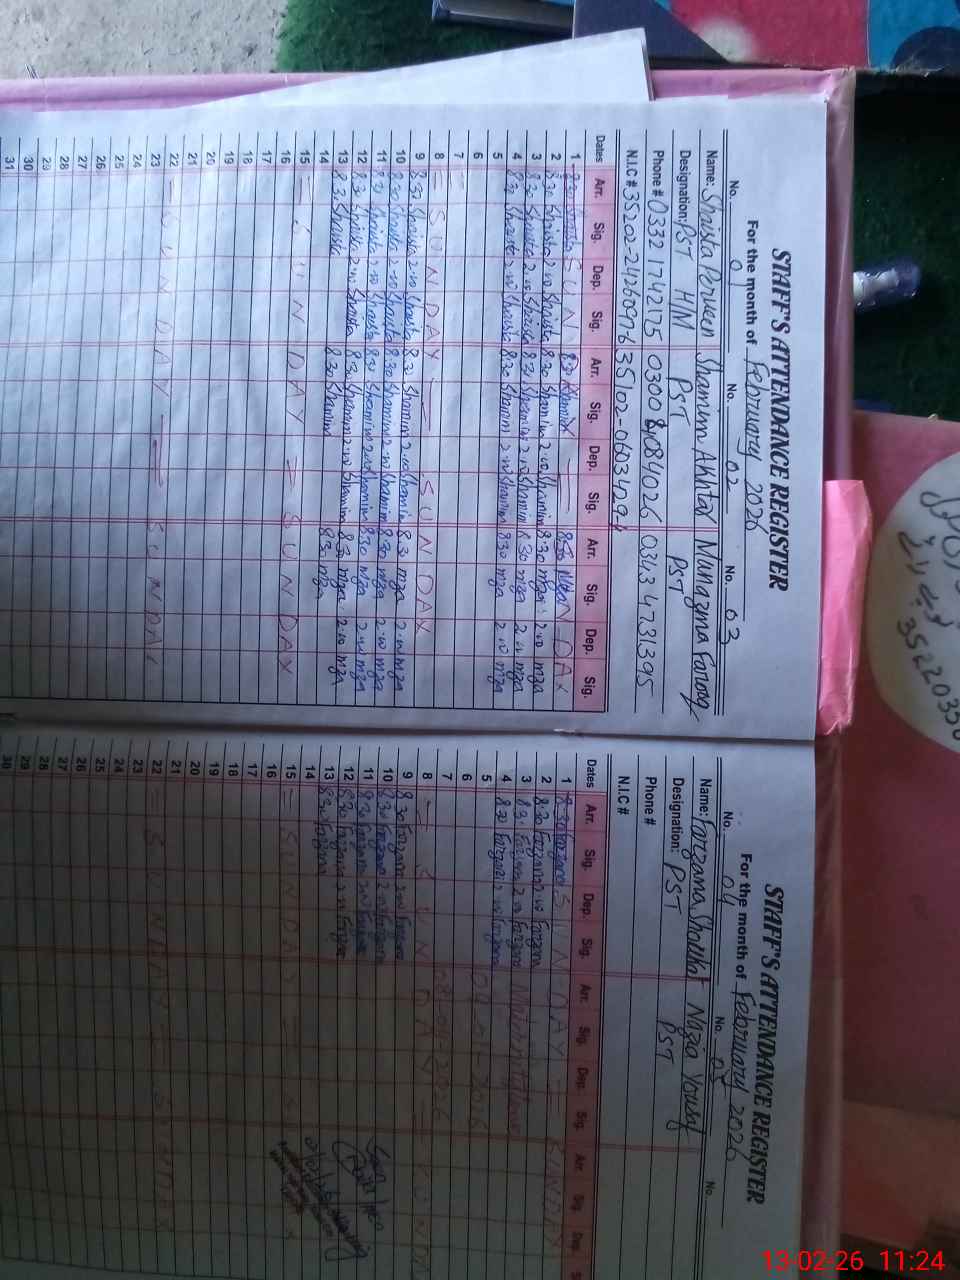 STAFF'S ATTENDANCE REGISTER
For the month of February 2026
No. 01 No. 02 No. 03
Name: Shaista Perveen Shamim Akhtar Munazma Farooq
Designation: PST H/M PST PST
Phone # 0332 1742175 0300 8084026 0343 4731395
N.I.C # 35202-2426097-6 35102-0603429-4
Dates Arr. Sig. Dep. Sig. Arr. Sig. Dep. Sig. Arr. Sig. Dep. Sig.
1 SUNDAY
2 8.30 Shaista 2.00 Shaista 8.30 Shamim 2.00 Shamim 8.30 mza 2.00 mza
3 8.30 Shaista 2.00 Shaista 8.30 Shamim 2.00 Shamim 8.30 mza 2.00 mza
4 8.30 Shaista 2.00 Shaista 8.30 Shamim 2.00 Shamim 8.30 mza 2.00 mza
5
6
7
8 SUNDAY SUNDAY
9 8.30 Shaista 2.00 Shaista 8.30 Shamim 2.00 Shamim 8.30 mza 2.00 mza
10 8.30 Shaista 2.00 Shaista 8.30 Shamim 2.00 Shamim 8.30 mza 2.00 mza
11 8.30 Shaista 2.00 Shaista 8.30 Shamim 2.00 Shamim 8.30 mza 2.00 mza
12 8.30 Shaista 2.00 Shaista 8.30 Shamim 2.00 Shamim 8.30 mza 2.00 mza
13 8.30 Shaista 8.30 Shamim 8.30 mza
14
15 SUNDAY SUNDAY
16
17
18
19
20
21
22 SUNDAY SUNDAY
23
24
25
26
27
28
29
30
31
STAFF'S ATTENDANCE REGISTER
For the month of February 2026
No. 04 No. 05 No.
Name: Farzana Shaukat Nazia Yousaf
Designation: PST PST
Phone #
N.I.C #
Dates Arr. Sig. Dep. Sig. Arr. Sig. Dep. Sig. Arr. Sig. Dep. S
1 SUNDAY SUNDAY
2 8.30 Farzana 2.00 Farzana
3 8.30 Farzana 2.00 Farzana
4 8.30 Farzana 2.00 Farzana
5
6
7
8 SUNDAY
9 8.30 Farzana 2.00 Farzana
10 8.30 Farzana 2.00 Farzana
11 8.30 Farzana 2.00 Farzana
12 8.30 Farzana 2.00 Farzana
13 8.30 Farzana
14
15 SUNDAY
16
17
18
19
20
21
22 SUNDAY
23
24
25
26
27
28
29
30
13-02-26 11:24